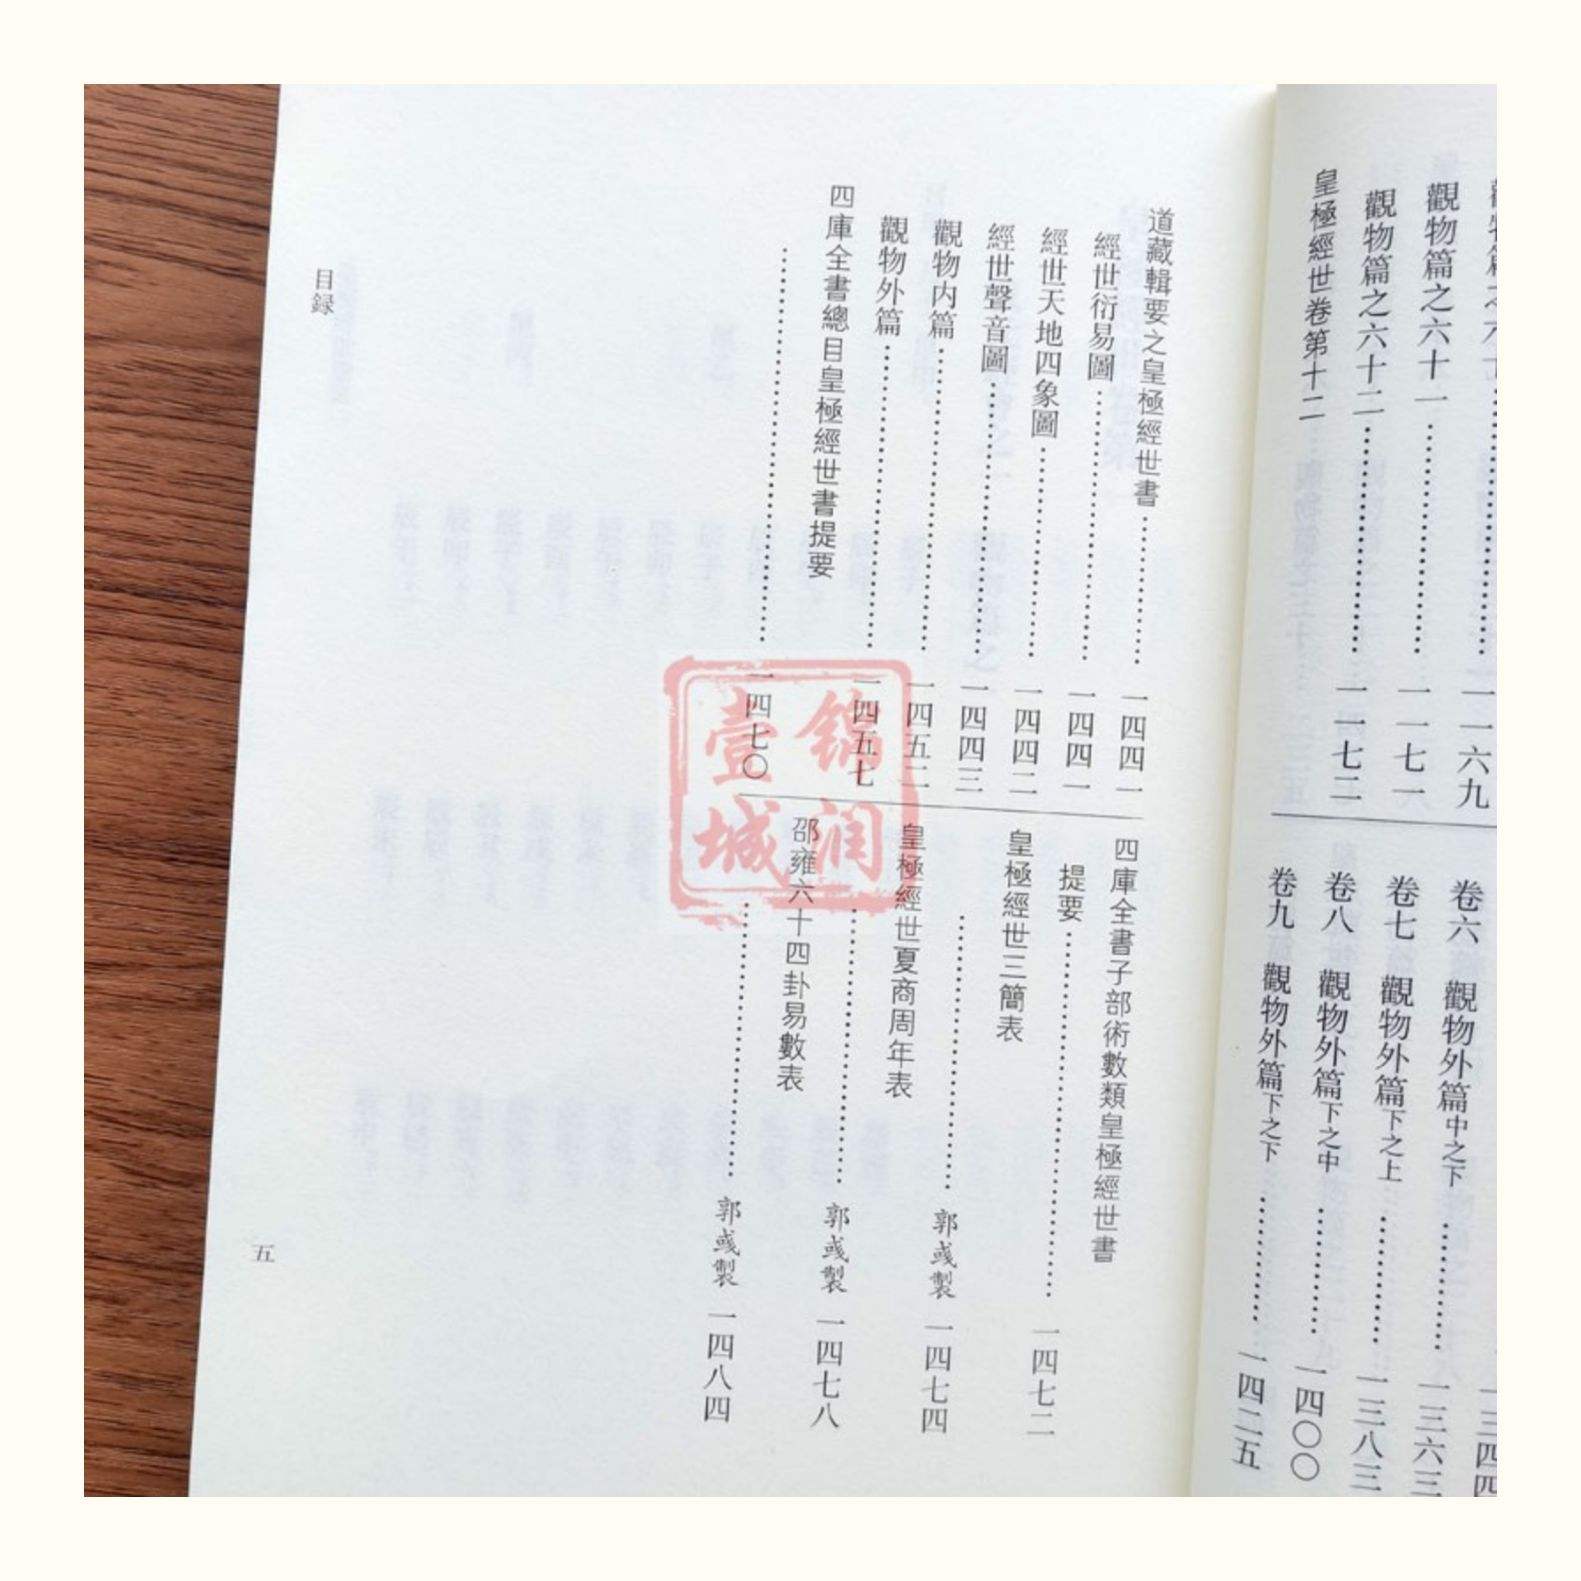 觀物篇之六十一……一一七一
觀物篇之六十二……一一七二
皇極經世卷第十二
卷六 觀物外篇中之下……一三六三
卷七 觀物外篇下之上……一三八三
卷八 觀物外篇下之中……一四〇〇
卷九 觀物外篇下之下……一四二五
道藏輯要之皇極經世書……一四四一
經世衍易圖……一四四一
經世天地四象圖……一四四二
經世聲音圖……一四四三
觀物内篇……一四五二
觀物外篇……一四五七
四庫全書總目皇極經世書提要
……一四七〇
四庫全書子部術數類皇極經世書
提要……一四七二
皇極經世三簡表
……郭彧製 一四七四
皇極經世夏商周年表
……郭彧製 一四七八
邵雍六十四卦易數表
……郭彧製 一四八四
目録
五
锦润
壹城